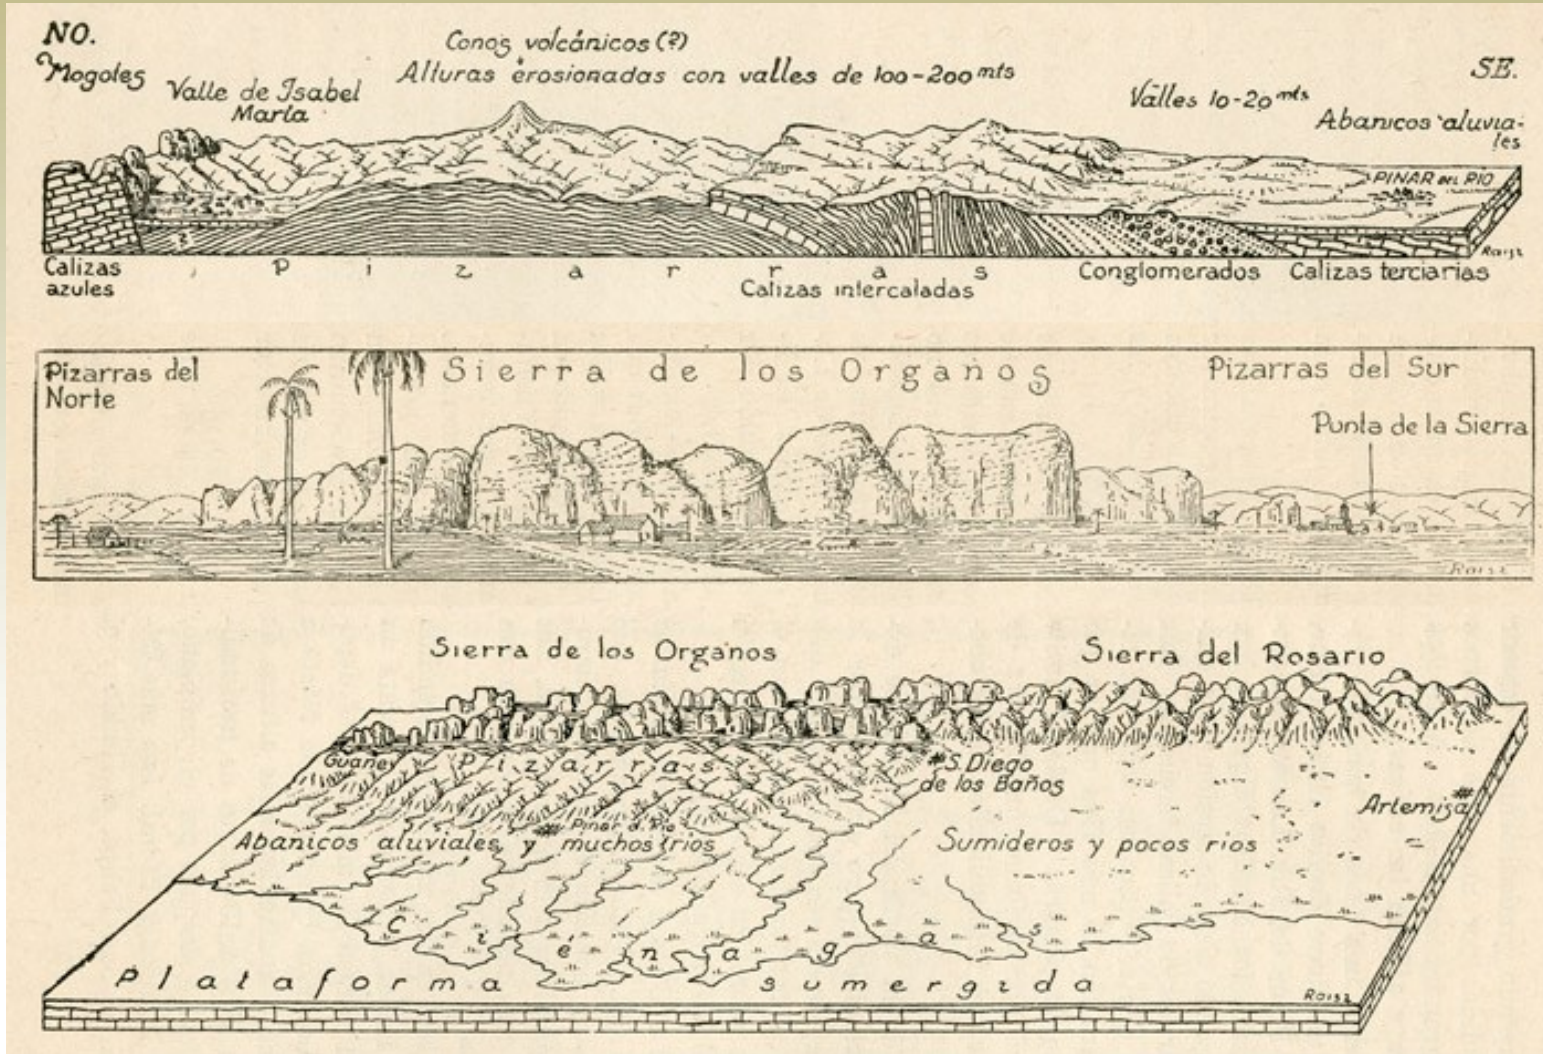 NO.
Mogotes
Valle de Isabel
María
Conos volcánicos (?)
Alturas erosionadas con valles de 100-200 mts
Valles 10-20 mts
SE.
Abanicos aluvia-
les
PINAR DEL RIO
Raisz
Calizas
azules
?
Pizarras
Calizas intercaladas
Conglomerados
Calizas terciarias
Pizarras del
Norte
Sierra de los Organos
Pizarras del Sur
Punta de la Sierra
Raisz
Sierra de los Organos
Sierra del Rosario
Guane
Pizarras
S. Diego
de los Baños
Artemisa
Pinar d. Rio
Abanicos aluviales y muchos rios
Sumideros y pocos rios
Ciénagas
Plataforma sumergida
Raisz